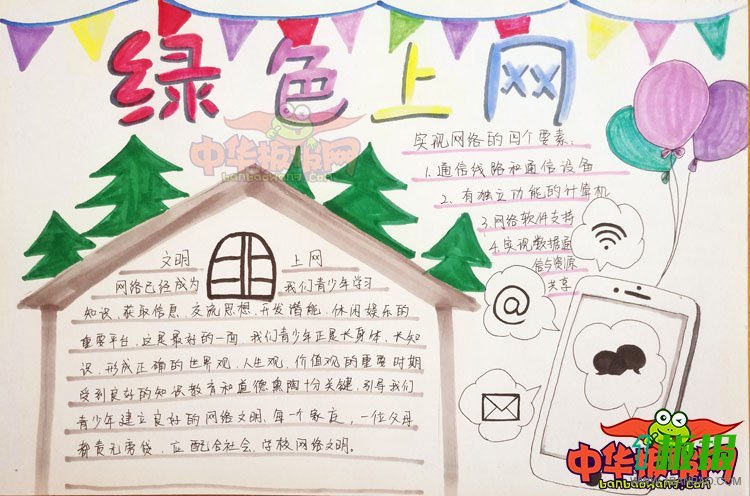 绿色上网
中华板报网
banbaowang.com
实视网络的四个要素:
1.通信线路和通信设备
2.有独立功能的计算机
3.网络软件支持
4.实视数据通
信与资源
共享
文明 上网
网络已经成为 我们青少年学习
知识、获取信息、交流思想、开发潜能、休闲娱乐的
重要平台,这是最好的一面,我们青少年正是长身体、长知
识,形成正确的世界观、人生观、价值观的重要时期
受到良好的知识教育和道德熏陶十分关键,引导我们
青少年建立良好的网络文明,每一个家庭,一位父母
都责无旁贷,应配合社会、学校网络文明。
@
中华板报网
banbaowang.com